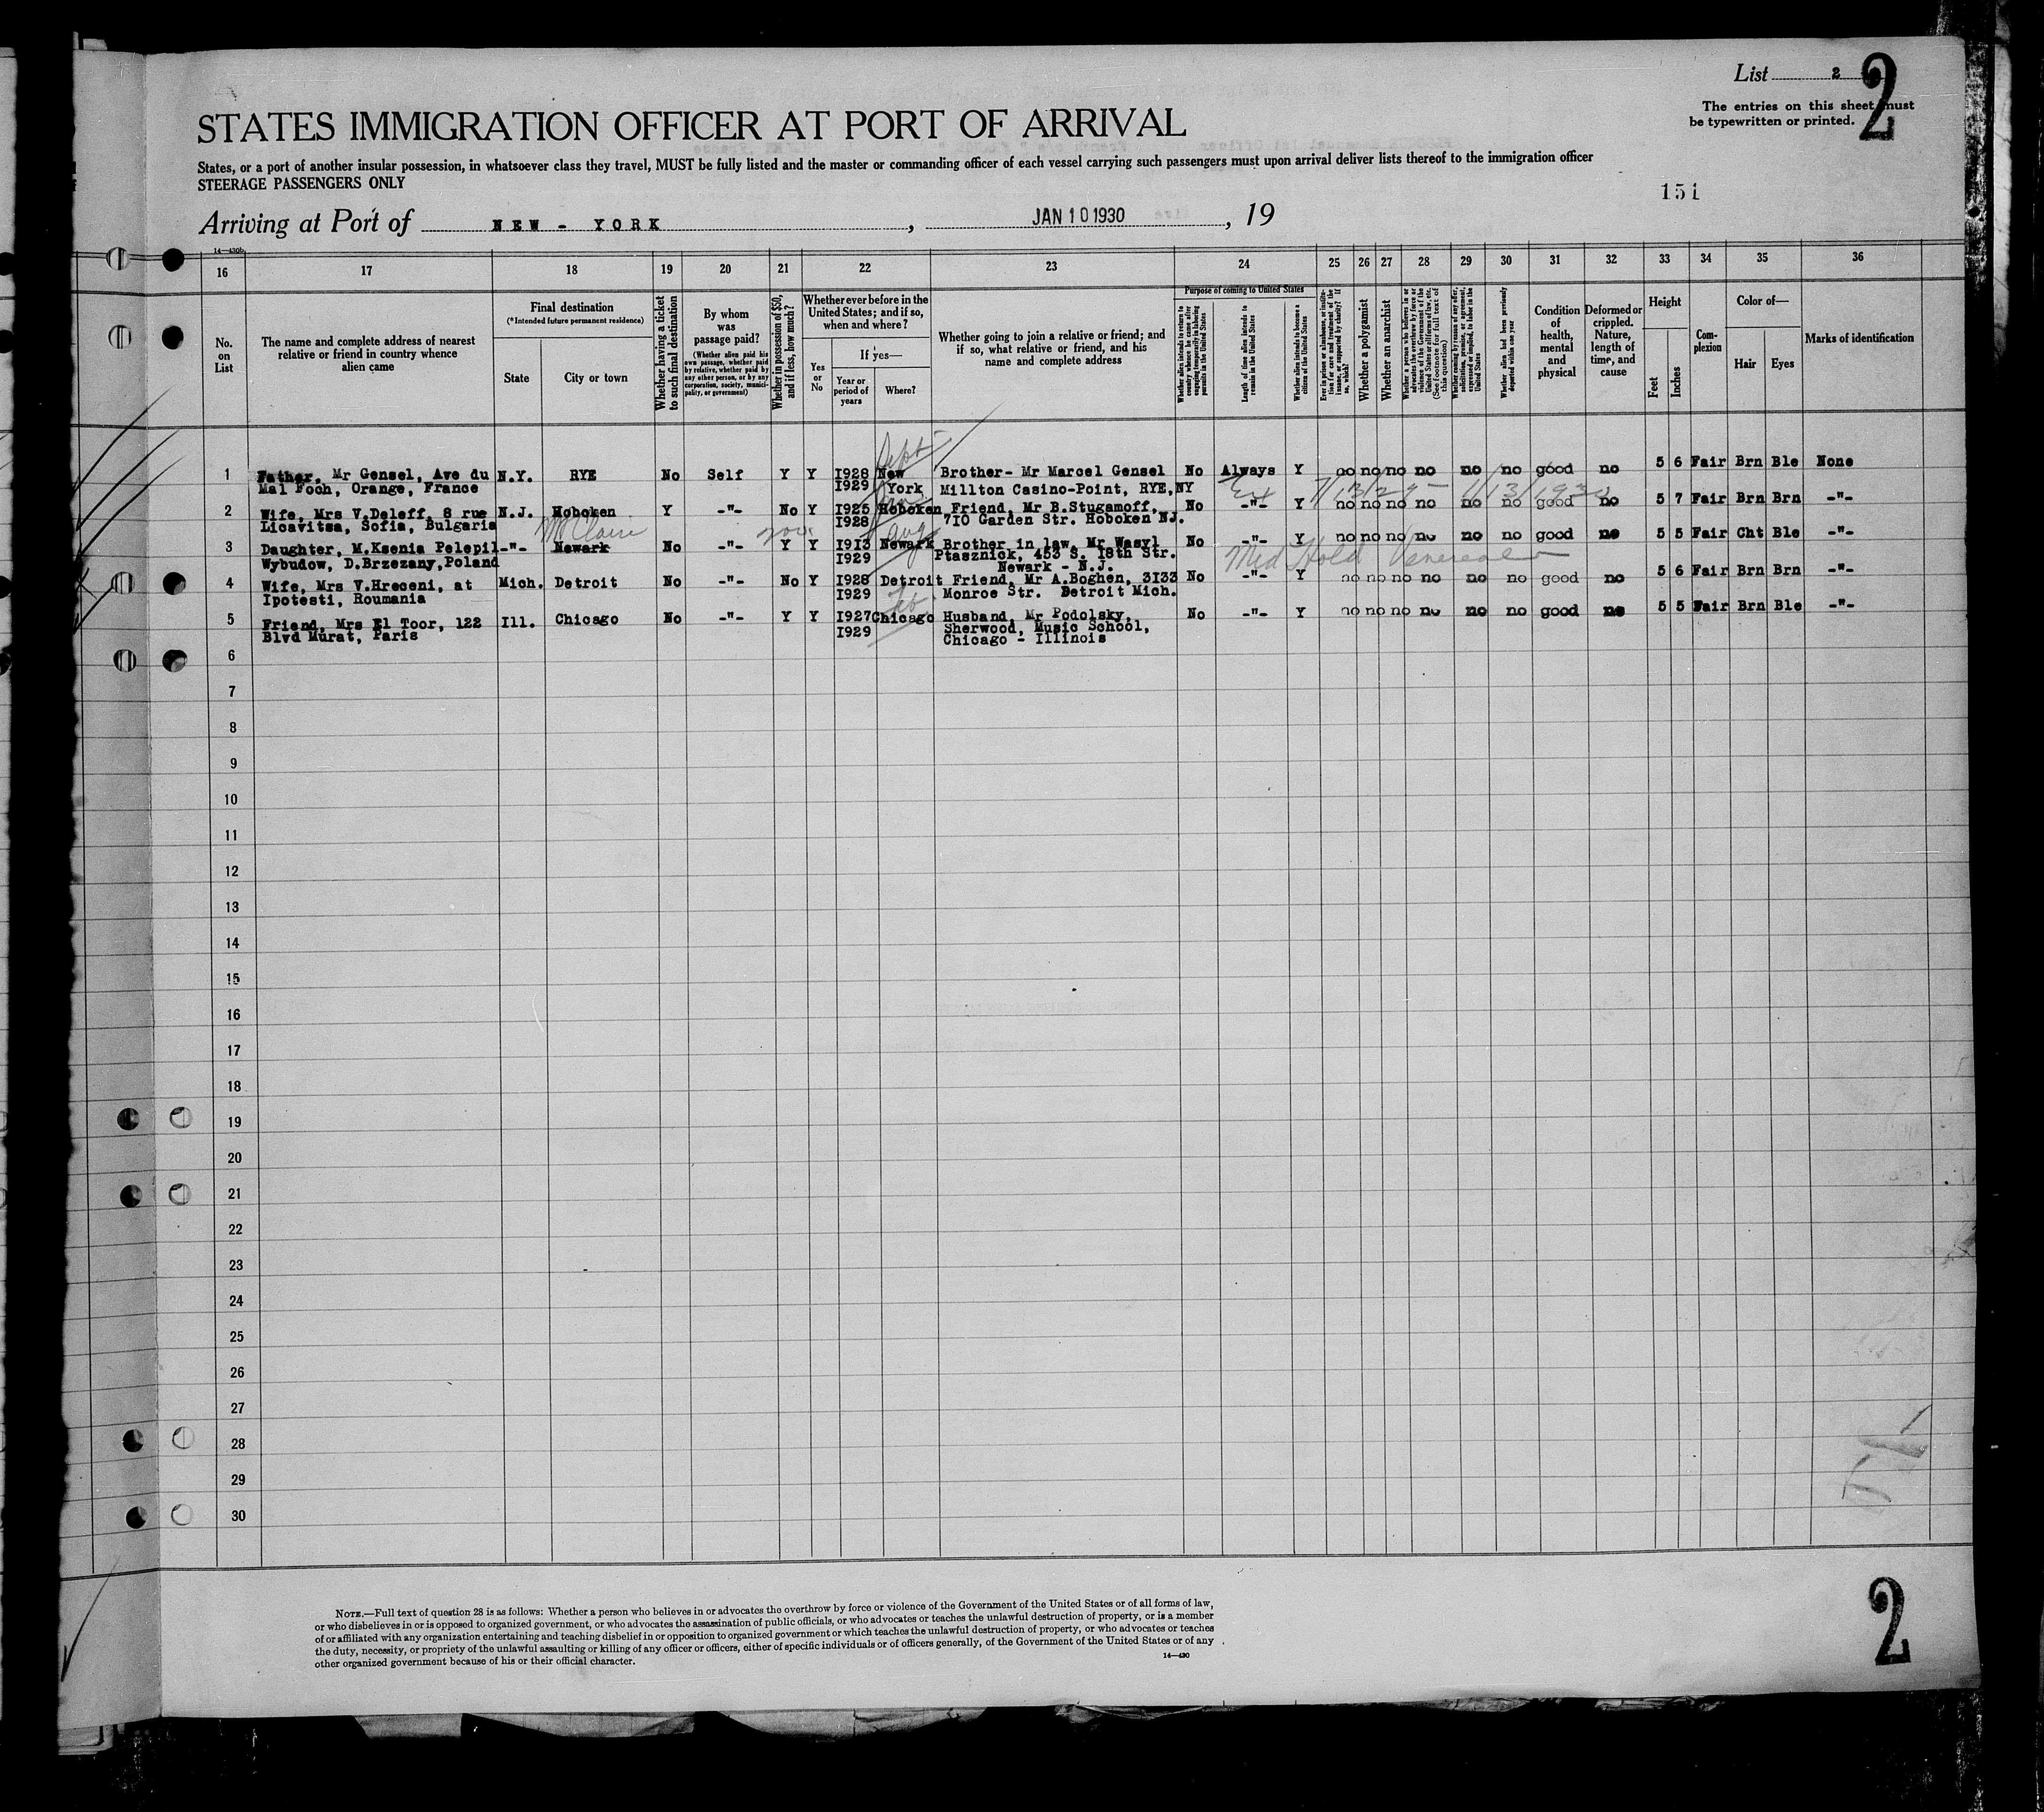 List 2
2
The entries on this sheet must
be typewritten or printed.
STATES IMMIGRATION OFFICER AT PORT OF ARRIVAL
States, or a port of another insular possession, in whatsoever class they travel, MUST be fully listed and the master or commanding officer of each vessel carrying such passengers must upon arrival deliver lists thereof to the immigration officer
STEERAGE PASSENGERS ONLY
151
Arriving at Port of NEW - YORK, JAN 10 1930, 19
14—430b
16 17 18 19 20 21 22 23 24 25 26 27 28 29 30 31 32 33 34 35 36
No.
on
List
The name and complete address of nearest
relative or friend in country whence
alien came
Final destination
(*Intended future permanent residence)
State
City or town
Whether having a ticket
to such final destination
By whom
was
passage paid?
(Whether alien paid his
own passage, whether paid
by relative, whether paid by
any other person, or by any
corporation, society, munici-
pality, or government)
Whether in possession of $50,
and if less, how much?
Whether ever before in the
United States; and if so,
when and where?
Yes
or
No
If yes—
Year or
period of
years
Where?
Whether going to join a relative or friend; and
if so, what relative or friend, and his
name and complete address
Purpose of coming to United States
Whether alien intends to return to
country whence he came after
engaging temporarily in laboring
pursuits in the United States
Length of time alien intends to
remain in the United States
Whether alien intends to become a
citizen of the United States
Ever in prison or almshouse, or institu-
tion for care and treatment of the
insane, or supported by charity? If
so, which?
Whether a polygamist
Whether an anarchist
Whether a person who believes in or
advocates the overthrow by force or
violence of the Government of the
United States or all forms of law, etc.
(See footnote for full text of
this question)
Whether coming by reason of any offer,
solicitation, promise, or agreement,
expressed or implied, to labor in the
United States
Whether alien had been previously
deported within one year
Condition
of
health,
mental
and
physical
Deformed or
crippled.
Nature,
length of
time, and
cause
Height
Feet
Inches
Com-
plexion
Color of—
Hair
Eyes
Marks of identification
Sept
1 Father, Mr Gensel, Ave du N.Y. RYE No Self Y Y 1928 New Brother- Mr Marcel Gensel No Always Y no no no no no no good no 5 6 Fair Brn Ble None
Mal Foch, Orange, France 1929 York Millton Casino-Point, RYE, NY
Ex 7/13/29 1/13/1930
2 Wife, Mrs V.Deleff, 8 rue N.J. Hoboken Y -"- No Y 1925 Hoboken Friend, Mr B.Stugamoff, No -"- Y no no no no no no good no 5 7 Fair Brn Brn -"-
Licavitsa, Sofia, Bulgaria 1928 710 Garden Str. Hoboken NJ.
McClain Nov Aug
3 Daughter, M.Ksenia Pelepil -"- Newark No -"- Y Y 1913 Newark Brother in law, Mr Wasyl No -"- Y no no no no no no good no 5 5 Fair Cht Ble -"-
Wybudow, D.Brzezany, Poland 1929 Ptasznick, 453 S. 18th Str.
Newark - N.J.
Med Hold Venereal
4 Wife, Mrs V.Hreceni, at Mich. Detroit No -"- No Y 1928 Detroit Friend, Mr A.Boghen, 3133 No -"- Y no no no no no no good no 5 6 Fair Brn Brn -"-
Ipotesti, Roumania 1929 Monroe Str. Detroit Mich.
Feb.
5 Friend, Mrs El Toor, 122 Ill. Chicago No -"- Y Y 1927 Chicago Husband, Mr Podolsky, No -"- Y no no no no no no good no 5 5 Fair Brn Ble -"-
Blvd Murat, Paris 1929 Sherwood, Music School,
Chicago - Illinois
6
7
8
9
10
11
12
13
14
15
16
17
18
19
20
21
22
23
24
25
26
27
28
29
30
NOTE.—Full text of question 28 is as follows: Whether a person who believes in or advocates the overthrow by force or violence of the Government of the United States or of all forms of law,
or who disbelieves in or is opposed to organized government, or who advocates the assassination of public officials, or who advocates or teaches the unlawful destruction of property, or is a member
of or affiliated with any organization entertaining and teaching disbelief in or opposition to organized government or which teaches the unlawful destruction of property, or who advocates or teaches
the duty, necessity, or propriety of the unlawful assaulting or killing of any officer or officers, either of specific individuals or of officers generally, of the Government of the United States or of any
other organized government because of his or their official character.
14—430
2